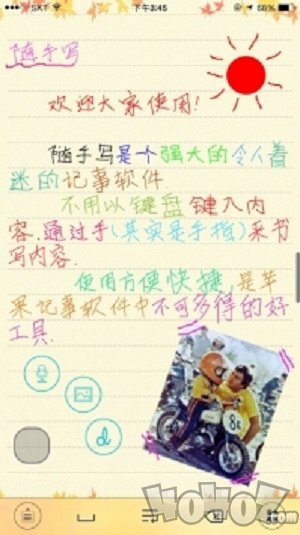 SKT 下午3:45
随手写
欢迎大家使用!
随手写是个强大的令人着
迷的记事软件.
不用以键盘键入内
容,通过手(其实是手指)来书
写内容.
使用方便快捷,是苹
果记事软件中不可多得的好
工具.
d